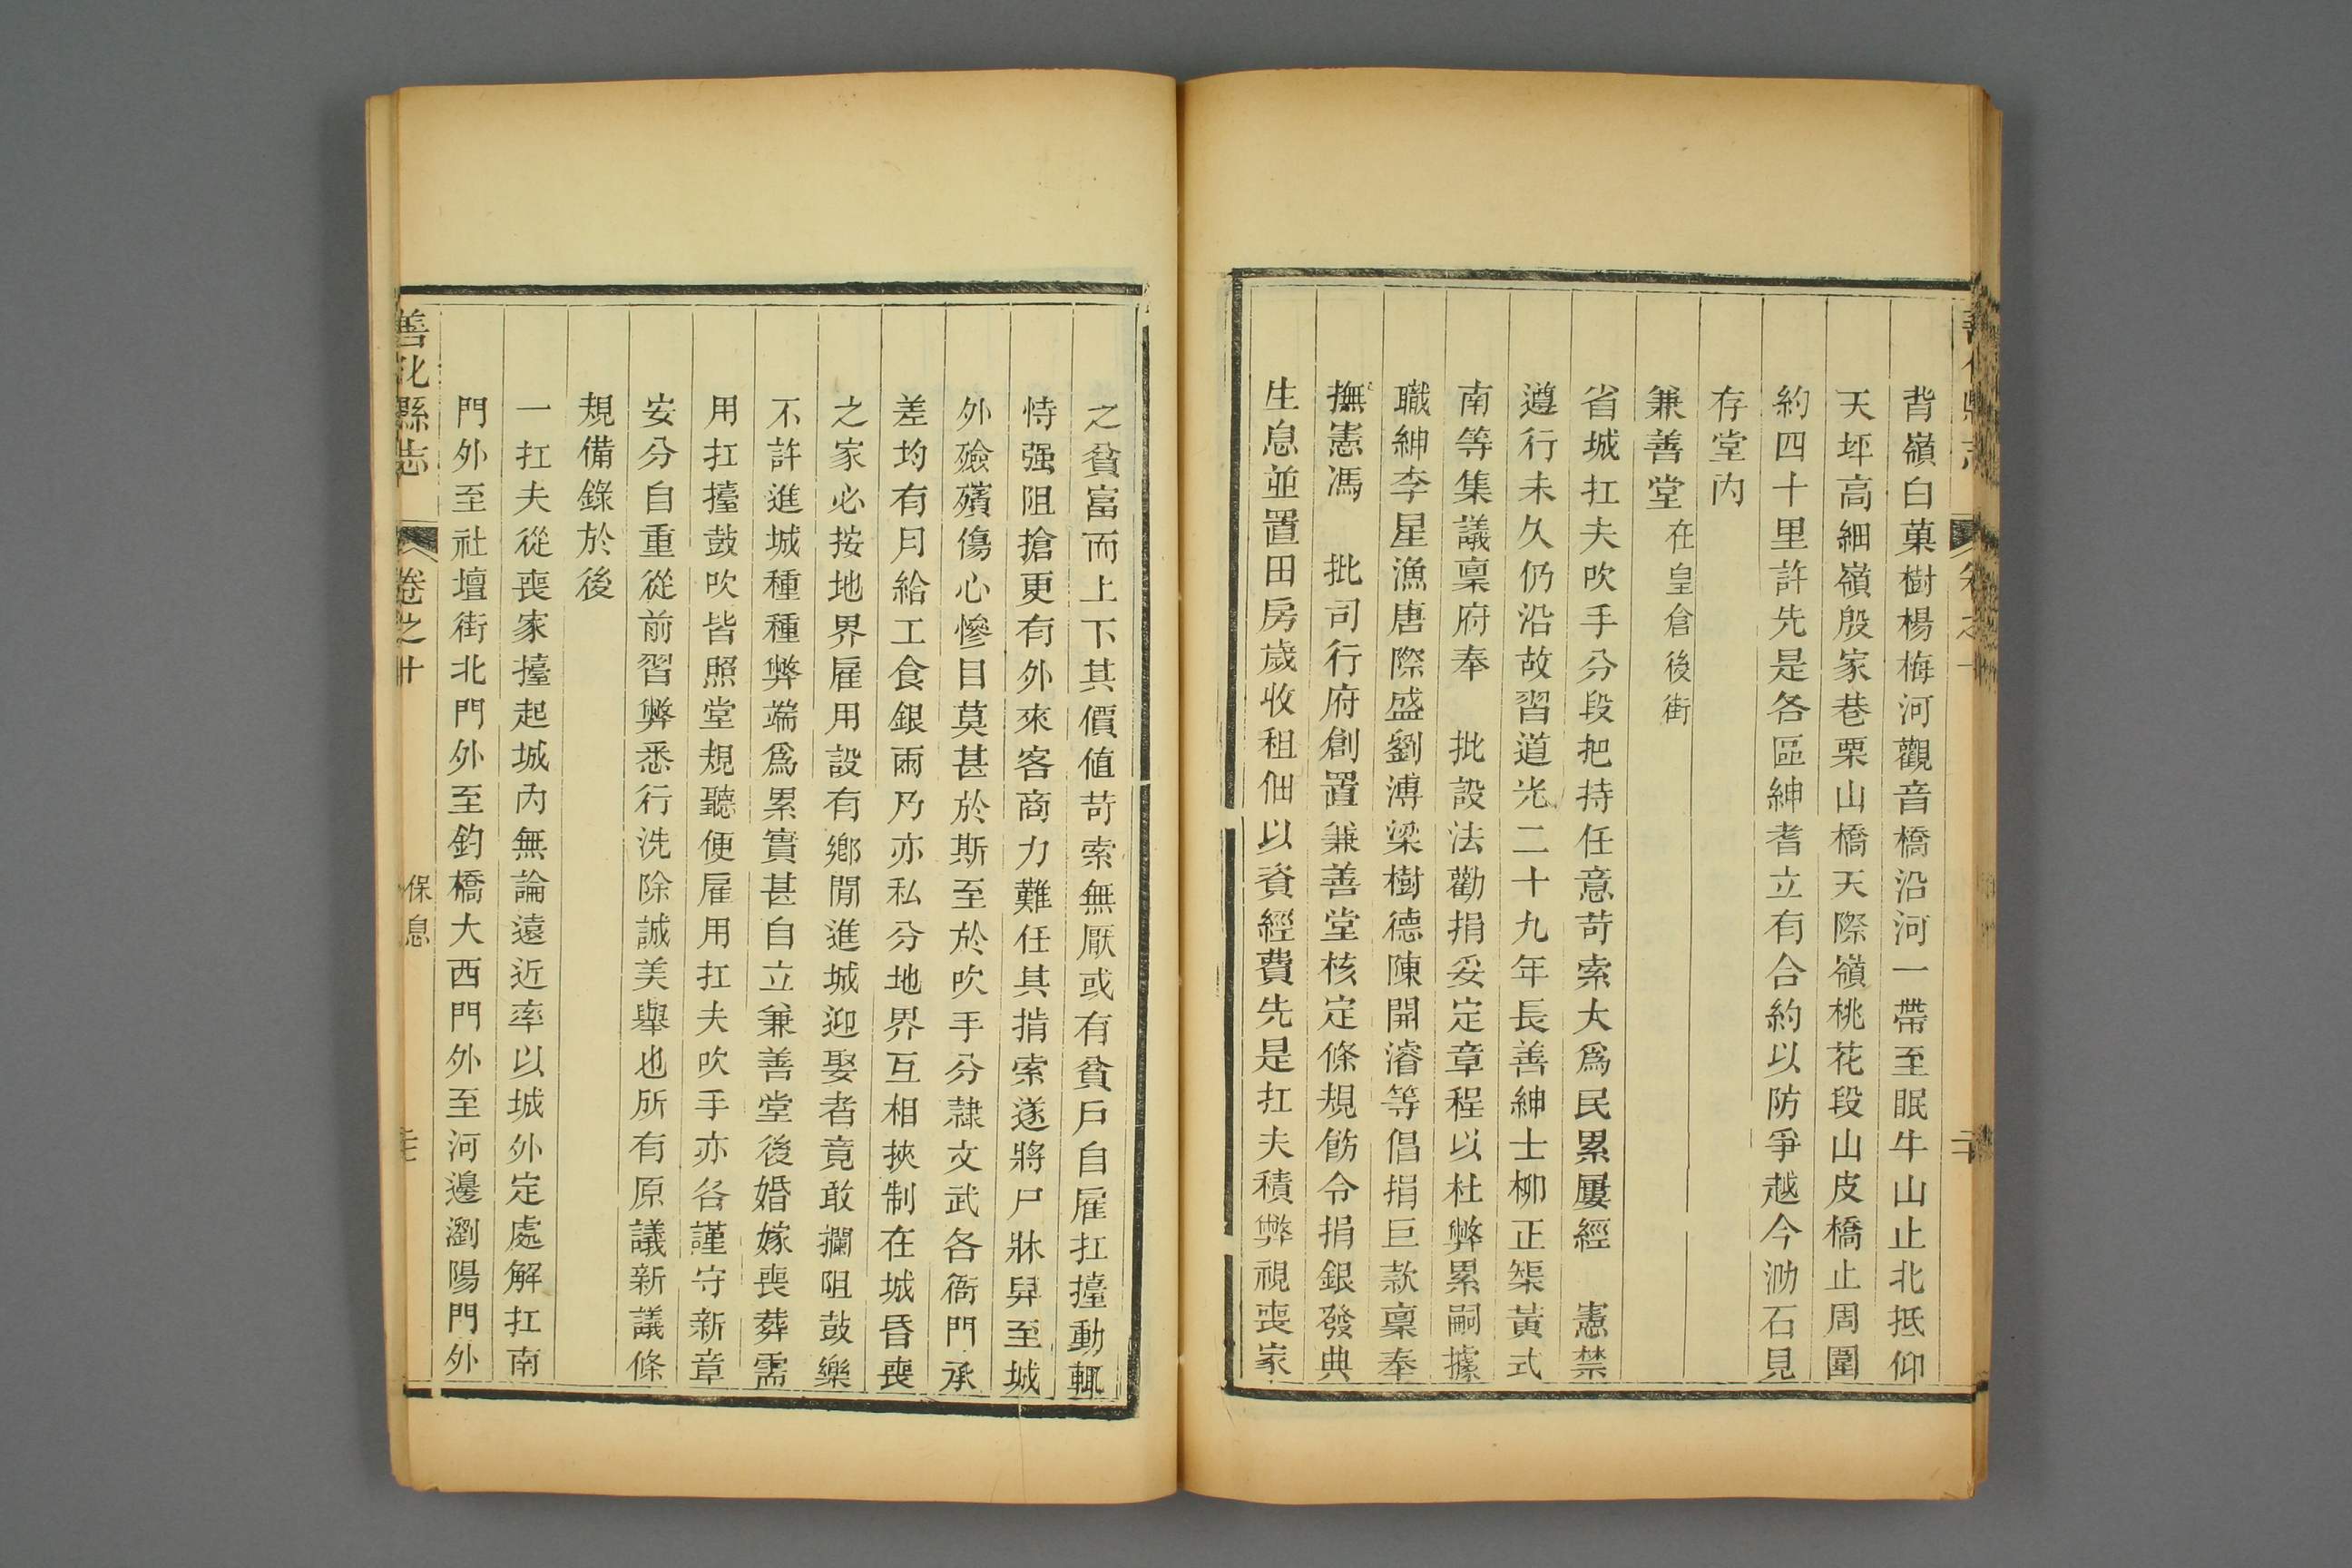 背嶺白菓樹楊梅河觀音橋沿河一帶至眠牛山止北抵仰
天坪高細嶺殷家巷栗山橋天際嶺桃花段山皮橋止周圍
約四十里許先是各區紳耆立有合約以防爭越今泐石見
存堂內
兼善堂在皇倉後街
省城扛夫吹手分段把持任意苛索大爲民累屢經 憲禁
遵行未久仍沿故習道光二十九年長善紳士柳正榘黃式
南等集議稟府奉 批設法勸捐妥定章程以杜弊累嗣據
職紳李星漁唐際盛劉溥梁樹德陳開濬等倡捐巨款稟奉
撫憲馮 批司行府創置兼善堂核定條規飭令捐銀發典
生息並置田房歲收租佃以資經費先是扛夫積弊視喪家
之貧富而上下其價值苛索無厭或有貧戶自雇扛擡動輒
恃强阻搶更有外來客商力難任其掯索遂將尸牀舁至城
外殮殯傷心慘目莫甚於斯至於吹手分隷文武各衙門承
差均有月給工食銀兩乃亦私分地界互相挾制在城昏喪
之家必按地界雇用設有鄉閒進城迎娶者竟敢攔阻鼓樂
不許進城種種弊端爲累實甚自立兼善堂後婚嫁喪葬需
用扛擡鼓吹皆照堂規聽便雇用扛夫吹手亦各謹守新章
安分自重從前習弊悉行洗除誠美舉也所有原議新議條
規備錄於後
一扛夫從喪家擡起城內無論遠近率以城外定處解扛南
門外至社壇街北門外至鈞橋大西門外至河邊瀏陽門外
善化縣志 卷之十 保息